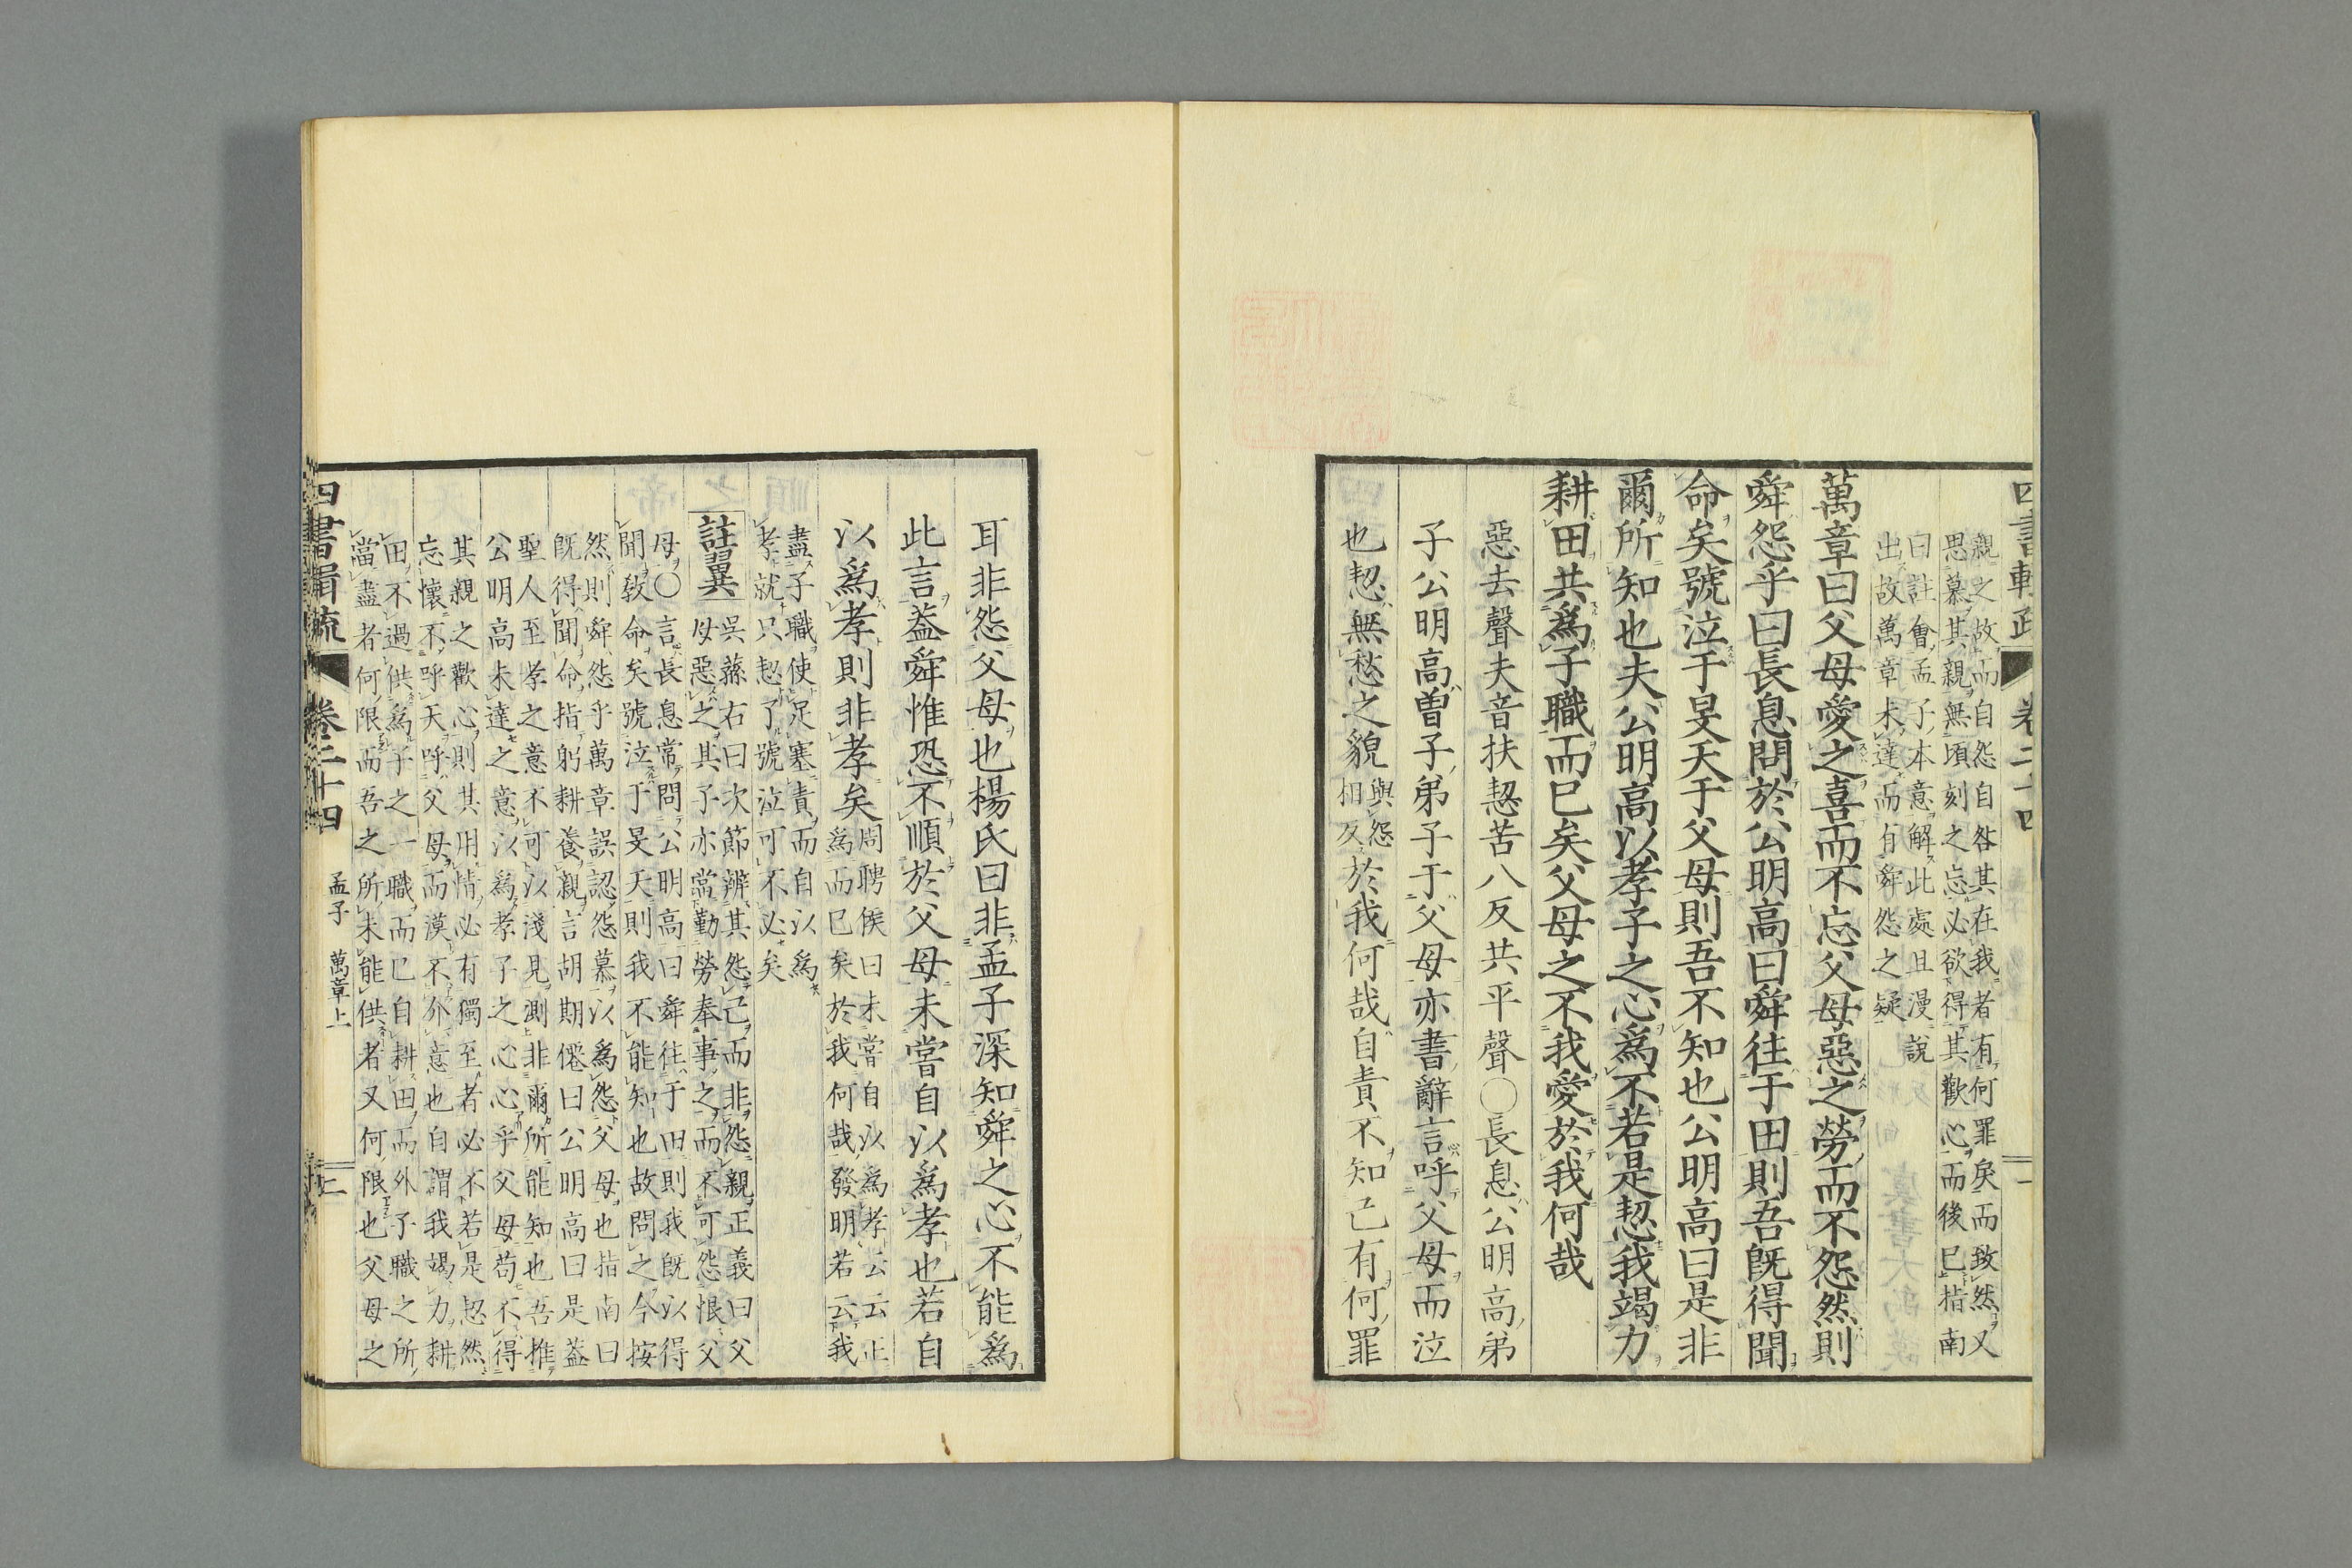 四書輯疏 卷二十四
親之故而自怨自咎其在我者有何罪戾而致然又
思慕其親無頃刻之忘必欲得其歡心而後已指南
曰註會孟子本意解此處且漫說
出故萬章未達而有舜怨之疑
萬章曰父母愛之喜而不忘父母惡之勞而不怨然則
舜怨乎曰長息問於公明高曰舜往于田則吾既得聞
命矣號泣于旻天于父母則吾不知也公明高曰是非
爾所知也夫公明高以孝子之心爲不若是恝我竭力
耕田共爲子職而已矣父母之不我愛於我何哉
惡去聲夫音扶恝苦八反共平聲○長息公明高弟
子公明高曽子弟子于父母亦書辭言呼父母而泣
也恝無愁之貌與怨相反於我何哉自責不知己有何罪
耳非怨父母也楊氏曰非孟子深知舜之心不能爲
此言葢舜惟恐不順於父母未嘗自以爲孝也若自
以爲孝則非孝矣周聘侯曰未嘗自以爲孝云云正
爲而已矣於我何哉發明若云我
盡子職使足塞責而自以爲
孝就只恝了號泣可不必矣
註翼 吳蓀右曰次節辨其怨己而非怨親正義曰父
母惡之其子亦當勤勞奉事之而不可怨恨父
母○言長息常問公明高曰舜往于田則我既以得
聞敎命矣號泣于旻天則我不能知也故問之今按
然則舜怨乎萬章誤認怨慕以爲怨父母也指南曰
既得聞命指躬耕養親言胡期僊曰公明高曰是葢
聖人至孝之意不可以淺見測非爾所能知也吾推
公明高未達之意以爲孝子之心心乎父母苟不得
其親之歡心則其用情必有獨至者必不若是恝然
忘懷不呼天呼父母而漠不介意也自謂我竭力耕
田不過供爲子之一職而已自耕田而外子職之所
當盡者何限而吾之所未能供者又何限也父母之
四書輯疏 卷二十四 孟子 萬章上 二